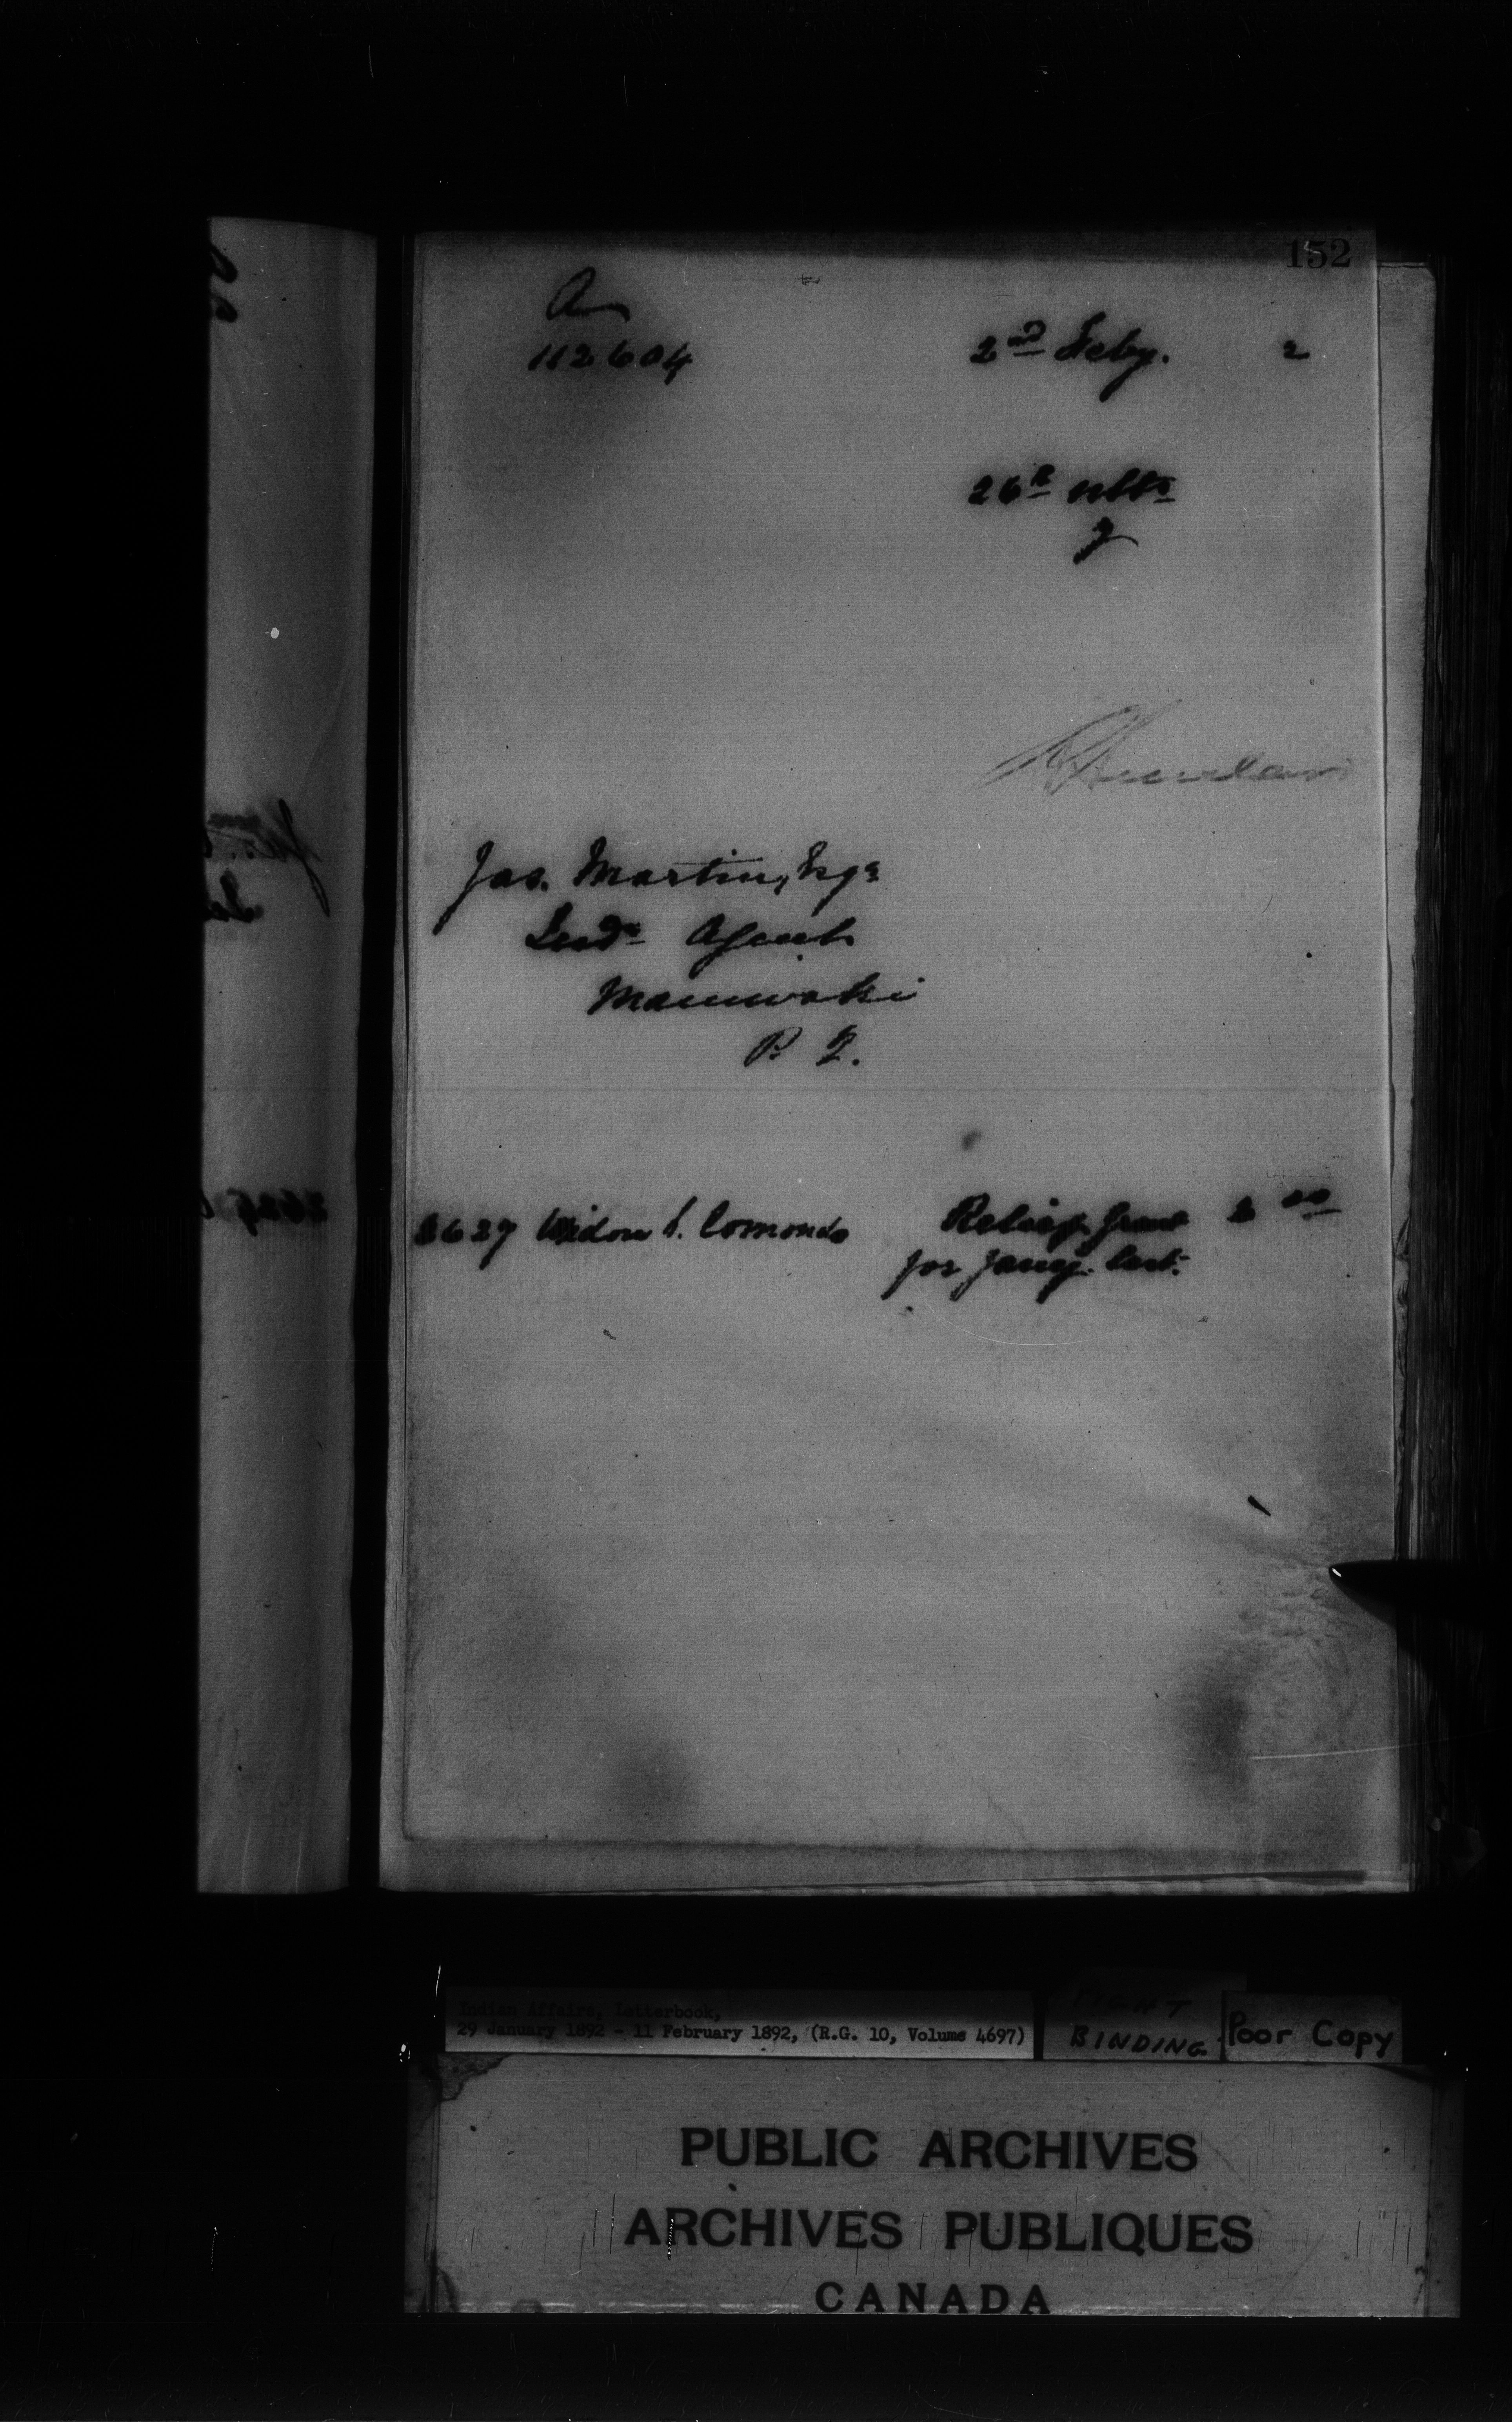 152
A
112604
2nd Feby. 2
26th ulto
J
Jas. Martin, Esqr
Indn Agent
Maniwaki
P. Q.
2627 Widow S. Comonda Relief grant 2 00
for Jany. last.
Indian Affairs, Letterbook,
29 January 1892 - 11 February 1892, (R.G. 10, Volume 4697)
TIGHT
BINDING
Poor Copy
PUBLIC ARCHIVES
ARCHIVES PUBLIQUES
CANADA